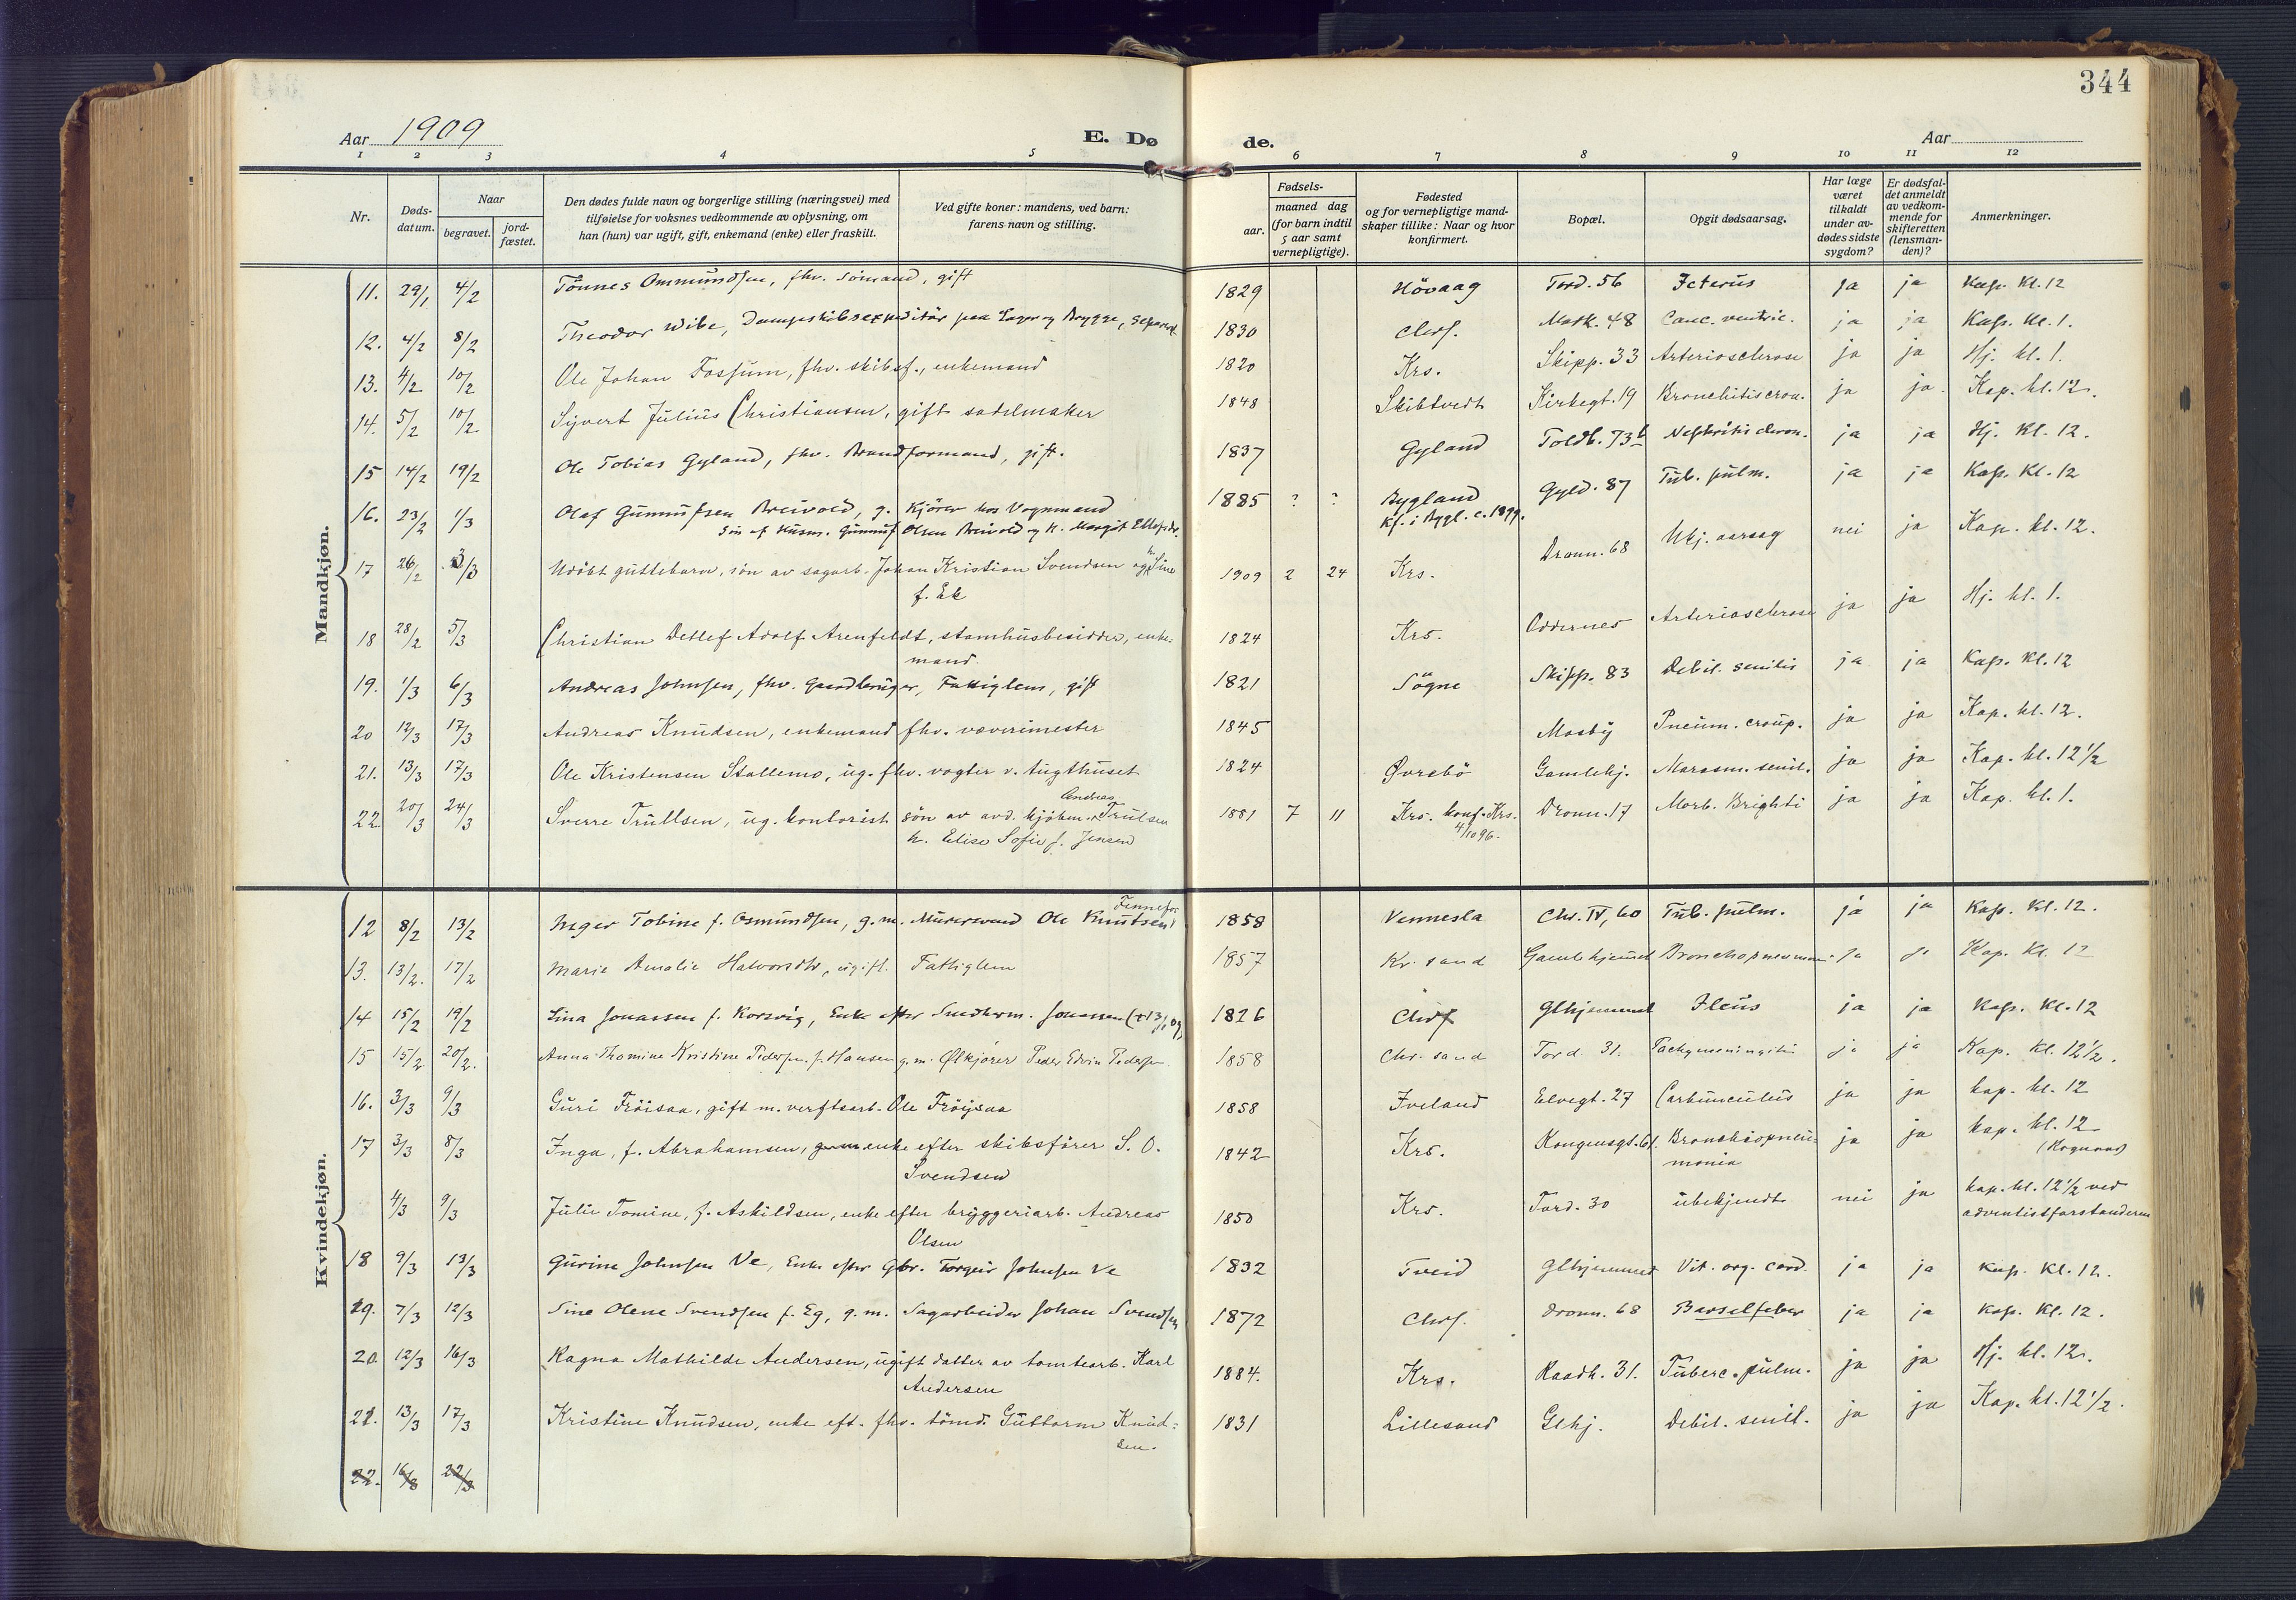 344
Aar 1909 E. Dø de. Aar
1 2 3 4 5 6 7 8 9 10 11 12
Nr.
Døds-datum.
Naar
begravet.
jord-fæstet.
Den dødes fulde navn og borgerlige stilling (næringsvei) med
tilføielse for voksnes vedkommende av oplysning, om
han (hun) var ugift, gift, enkemand (enke) eller fraskilt.
Ved gifte koner: mandens, ved barn:
farens navn og stilling.
Fødsels-
aar.
maaned dag
(for barn indtil
5 aar samt
vernepligtige).
Fødested
og for vernepligtige mand-
skaper tillike: Naar og hvor
konfirmert.
Bopæl.
Opgit dødsaarsag.
Har læge
været
tilkaldt
under av-
dødes sidste
sygdom?
Er dødsfal-
det anmeldt
av vedkom-
mende for
skifteretten
(lensman-
den)?
Anmerkninger.
Mandkjøn.
11. 29/1 4/2 Tönnes Ommundsen, fhv. Sømand, gift 1829 Hövaag Tord. 56 Icterus ja ja Kap. Kl. 12
12. 4/2 8/2 Theodor Wibe, Dampskibsexpeditør paa Lager og Brygge, Separert 1830 Chrs. Mark. 48 Canc. ventric. ja ja Kap. Kl. 1.
13. 4/2 10/2 Ole Johan Fossum, fhv. skibsf., enkemand 1820 Krs. Skipp. 33 Arteriosclerose ja ja Hj. kl. 1.
14. 5/2 10/2 Sjvert Julius Christiansen, gift sadelmaker 1848 Skibtvedt Kirkegt. 19 Bronchitis cron. ja ja Kap. kl. 12.
15 14/2 19/2 Ole Tobias Gyland, fhv. Brandformand, gift. 1837 Gyland Toldb. 73b Nefritis chron. ja ja Hj. Kl. 12.
16. 23/2 1/3 Olaf Gunnufsen Breivold, g. Kjörer hos Vognmand 1885 ? ? Bygland Gyld. 87 Tub. pulm. ja ja Kap. Kl. 12
Sön af Husm. Gunnuf Olsen Breivold og H. Margit Ellefsdr. Kf. i Bygl. c. 1899.
17 26/2 3/3 Udöbt guttebarn, sön av sagarb. Johan Kristian Svendsen og h. Sine 1909 2 24 Krs. Dronn. 68 Ukj. aarsag nei ja Kap. kl. 12.
f. Ek
18 28/2 5/3 Christian Detlef Adolf Arenfeldt, stamhusbesidder, enke- 1824 Krs. Oddernes Arteriosclerose ja ja Hj. kl. 1.
mand.
19. 1/3 6/3 Andreas Johnsen, fhv. Gaardbruger, Fattiglem, gift 1821 Sögne Skipp. 83 Debil. senilis ja ja Kap. Kl. 12
20 12/3 17/3 Andreas Knudsen, enkemand fhv. væverimester 1845 Mosby Pneum. croup. ja ja Kap. kl. 12.
21. 13/3 17/3 Ole Kristensen Stallemo, ug. fhv. vogter v. tugthuset 1824 Øvrebö Gamlehj. Marasm. senil. ja ja Kap. kl. 12 1/2
22. 20/3 24/3 Sverre Trullsen, ug. kontorist sön av avd. kjöbm. Andreas Trulsen 1881 7 11 Krs. konf. Krs. Dronn. 17 Morb. Brighti ja ja Kap. kl. 1.
h. Elise Sofie f. Jensen 4/10 96.
Kvindekjøn.
12 8/2 13/2 Inger Tobine f. Osmundsen, g. m. Murersvend Ole Knutsen Fennefos 1858 Vennesla Chr. IV, 60 Tub. pulm. ja ja Kap. Kl. 12.
13. 13/2. 17/2 Marie Amalie Halvorsdtr, ugift. Fattiglem 1857 Kr. sand Gamlehjemmet Bronchopneumon. ja ja Kap. Kl. 12
14 15/2 19/2 Sina Jonassen f. Korsvig, Enke efter Snedkerm. Jonassen (+13/1 09) 1826 Chrs Glhjemmet Ileus ja ja Kap. Kl. 12
15 15/2 20/2. Anna Thomine Kristine Pedersen f. Hansen g. m. Ølkjører Peder Edvin Pedersen. 1858 Chr. sand Tord. 31. Pachymeningitis ja ja Kap. Kl. 12 1/2.
16. 3/3 9/3 Guri Fröisaa, gift m. verftsarb. Ole Fröysaa 1858 Iveland Elvegt. 27 Carbunculus ja ja kap. kl. 12
17 3/3 8/3 Inga, f. Abrahamsen, enke efter skibsfører S. O. 1842 Krs. Kongensgt. 61. Bronchiopneu- ja ja kap. kl. 12
Svendsen monia
4/3 9/3 Julie Tomine, f. Askildsen, enke efter bryggeriarb. Andreas 1850 Krs. Tord. 30 ubekjendt nei ja kap. kl. 12 1/2 ved
Olsen adventistforstanderen
18 9/3 13/3 Gurine Johnsen Ve, Enke efter Gbr. Torgeir Johnsen Ve 1832 Tveid Glhjemmet Vit. org. cord. ja ja Kap. Kl. 12.
19. 7/3 12/3 Sine Olene Svendsen f. Eg, g. m. Sagarbeider Johan Svendsen 1872 Chrs. Dronn. 68 Barselfeber ja ja Kap. Kl. 12.
20 12/3 16/3 Ragna Mathilde Andersen, ugift datter av tomtearb. Karl 1884. Krs. Raadh. 31. Tuberc. pulm. ja ja Hj. kl. 12.
Andersen
21. 13/3 17/3 Kristine Knudsen, enke eft. fhv. tömd. Guttorm Knud- 1831 Lillesand Glhj. Debil. senil. ja ja Kap. kl. 12 1/2.
sen.
22. 16/3 22/3